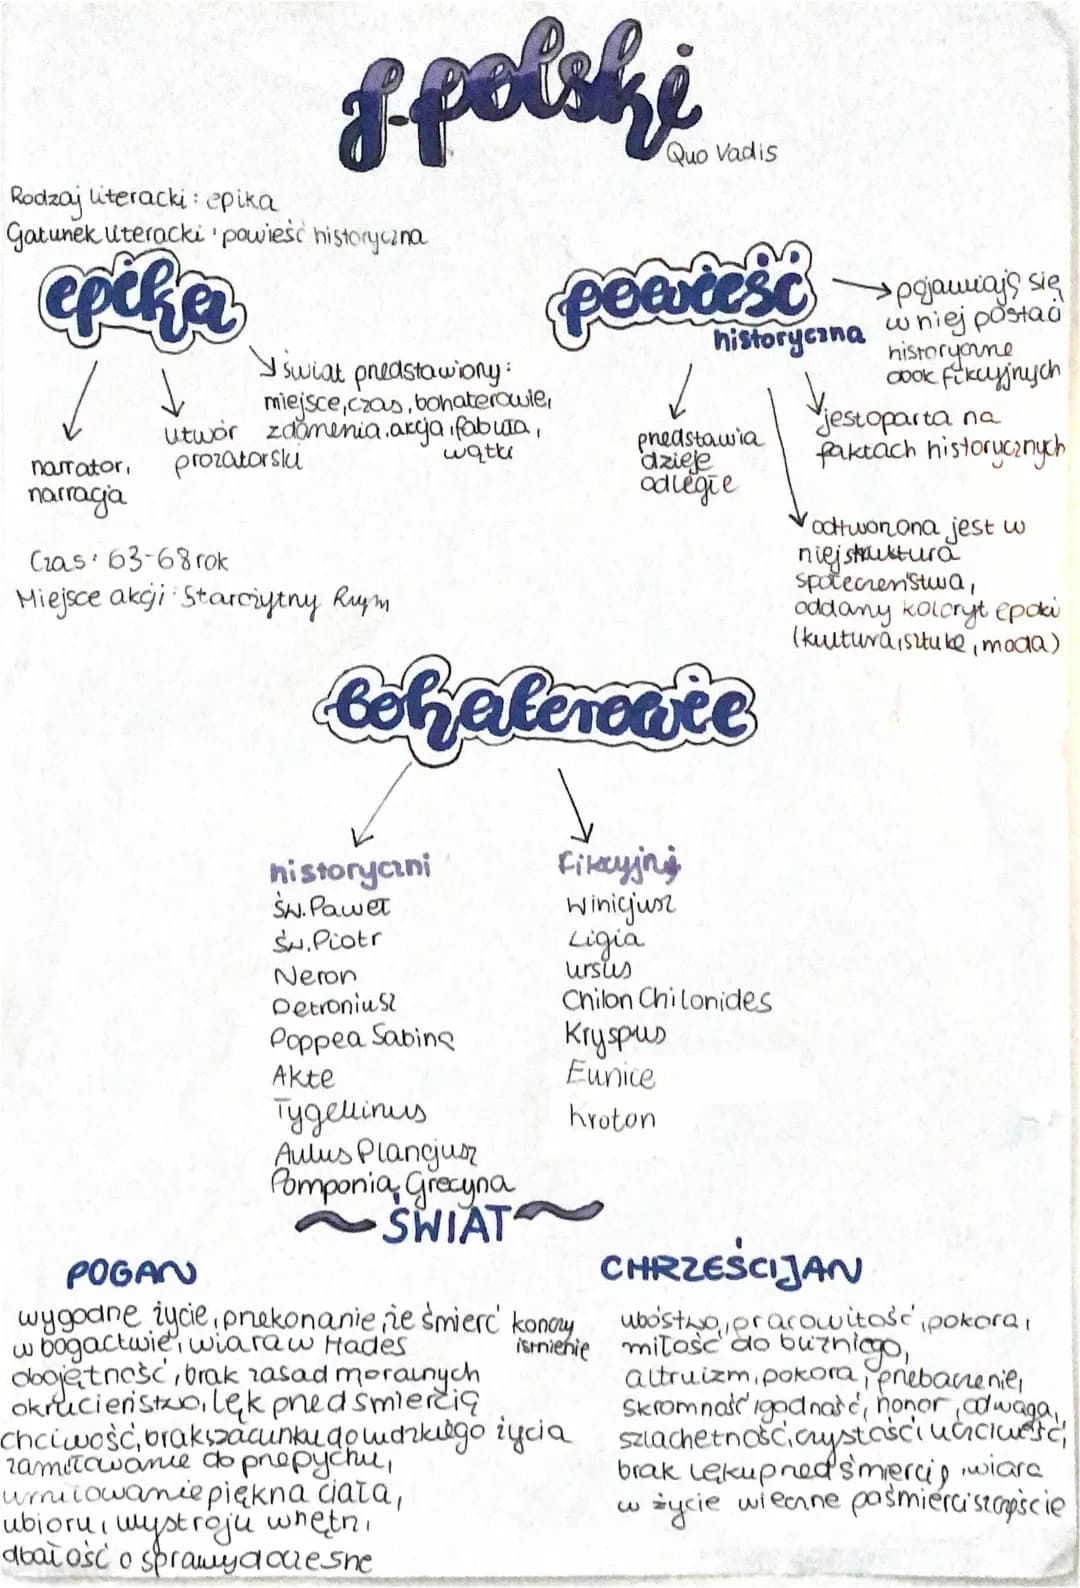 J. polski
Quo Vadis
Rodzaj literacki: epika
Gatunek literacki: powieść historyczna
epika
narrator,
narracja
utwór
prozatorski
świat przedstawiony:
miejsce, czas, bohaterowie,
zdarzenia, akcja, fabuła,
wątki
powieść
historyczna
pojawiają się
w niej postaci
historyczne
obok fikcyjnych
przedstawia
dzieje
odległe
jest oparta na
faktach historycznych
odtworzona jest w
niej struktura
społeczeństwa,
oddany koloryt epoki
(kultura, sztukę, moda)
Czas: 63-68 rok
Miejsce akcji: Starożytny Rzym
bohaterowie
historyczni
Św. Paweł
Św. Piotr
Neron
Petroniusz
Poppea Sabina
Akte
Tygellinus
Aulus Plancjusz
Pomponia Grecyna
fikcyjni
Winicjusz
Ligia
Ursus
Chilon Chilonides
Kryspus
Eunice
Kroton
ŚWIAT
POGAN
wygodne życie, przekonanie, że śmierć kończy
w bogactwie, wiara w Hades istnienie
obojętność, brak zasad moralnych
okrucieństwo, lęk przed śmiercią
chciwość, brak szacunku do ludzkiego życia
zamiłowanie do przepychu,
umiłowanie piękna ciała,
ubioru, wystroju wnętrz,
dbałość o sprawy doczesne
CHRZEŚCIJAN
ubóstwo, pracowitość, pokora,
miłość do bliźniego,
altruizm, pokora, przebaczenie,
skromność, godność, honor, odwaga,
szlachetność, czystość i uczciwość,
brak lęku przed śmiercią, wiara
w życie wieczne po śmierci szczęście